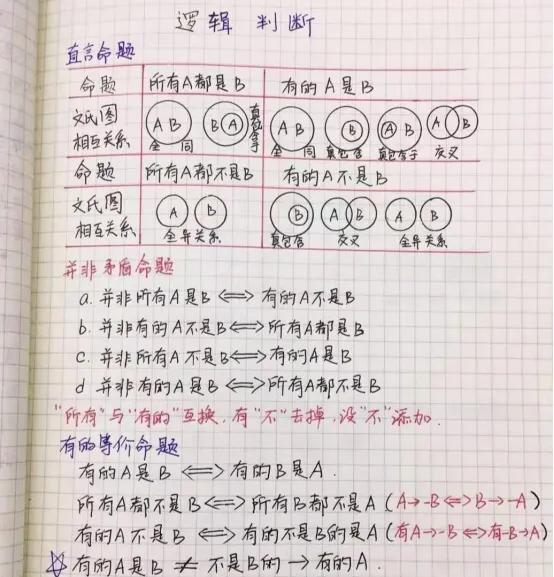 逻辑判断
直言命题
命题 所有A都是B 有的A是B
文氏图 A B B A 真包含于 A B B A B A B
相互关系 全同 全同 真包含 真包含于 交叉
命题 所有A都不是B 有的A不是B
文氏图 A B B A B A B
相互关系 全异关系 真包含 交叉 全异关系
并非矛盾命题
a. 并非所有A是B⟺有的A不是B
b. 并非有的A不是B⟺所有A都是B
c. 并非所有A不是B⟺有的A是B
d 并非有的A是B⟺所有A都不是B
"所有"与"有的"互换,有"不"去掉,没"不"添加.
有的等价命题
有的A是B⟺有的B是A.
所有A都不是B⟺所有B都不是A(A→-B⟺B→-A)
有的A不是B⟺有的不是B的是A(有A→-B⟺有-B→A)
☆有的A是B≠不是B的→有的A.